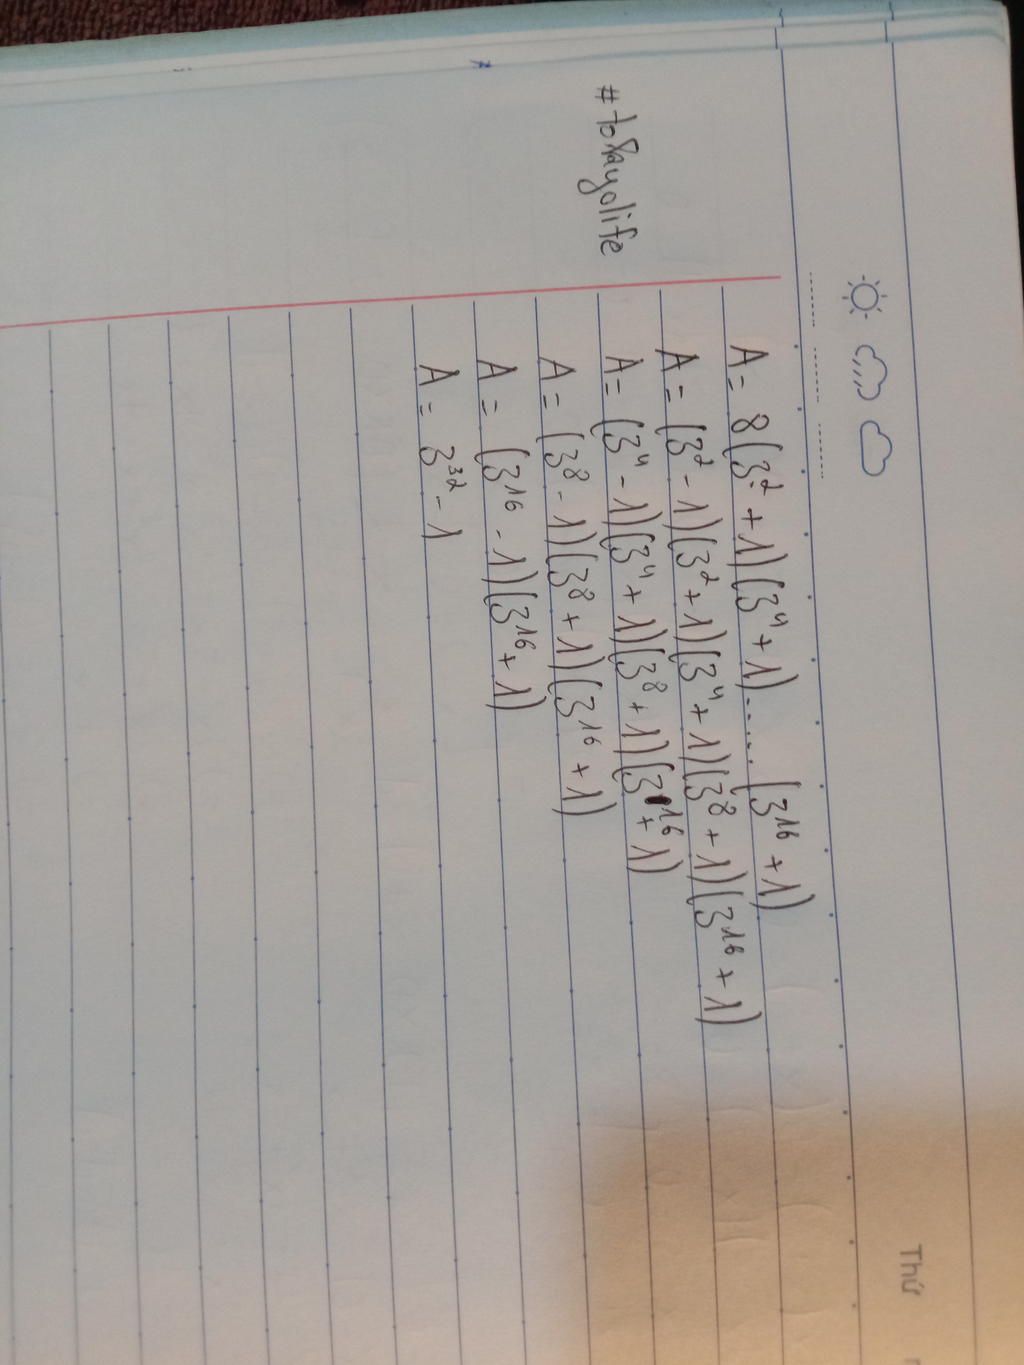 Thứ
A = 8(3² + 1)(3⁴ + 1)..... (3¹⁶ + 1)
A = (3² - 1)(3² + 1)(3⁴ + 1)(3⁸ + 1)(3¹⁶ + 1)
A = (3⁴ - 1)(3⁴ + 1)(3⁸ + 1)(3¹⁶ + 1)
A = (3⁸ - 1)(3⁸ + 1)(3¹⁶ + 1)
A = (3¹⁶ - 1)(3¹⁶ + 1)
A = 3³² - 1